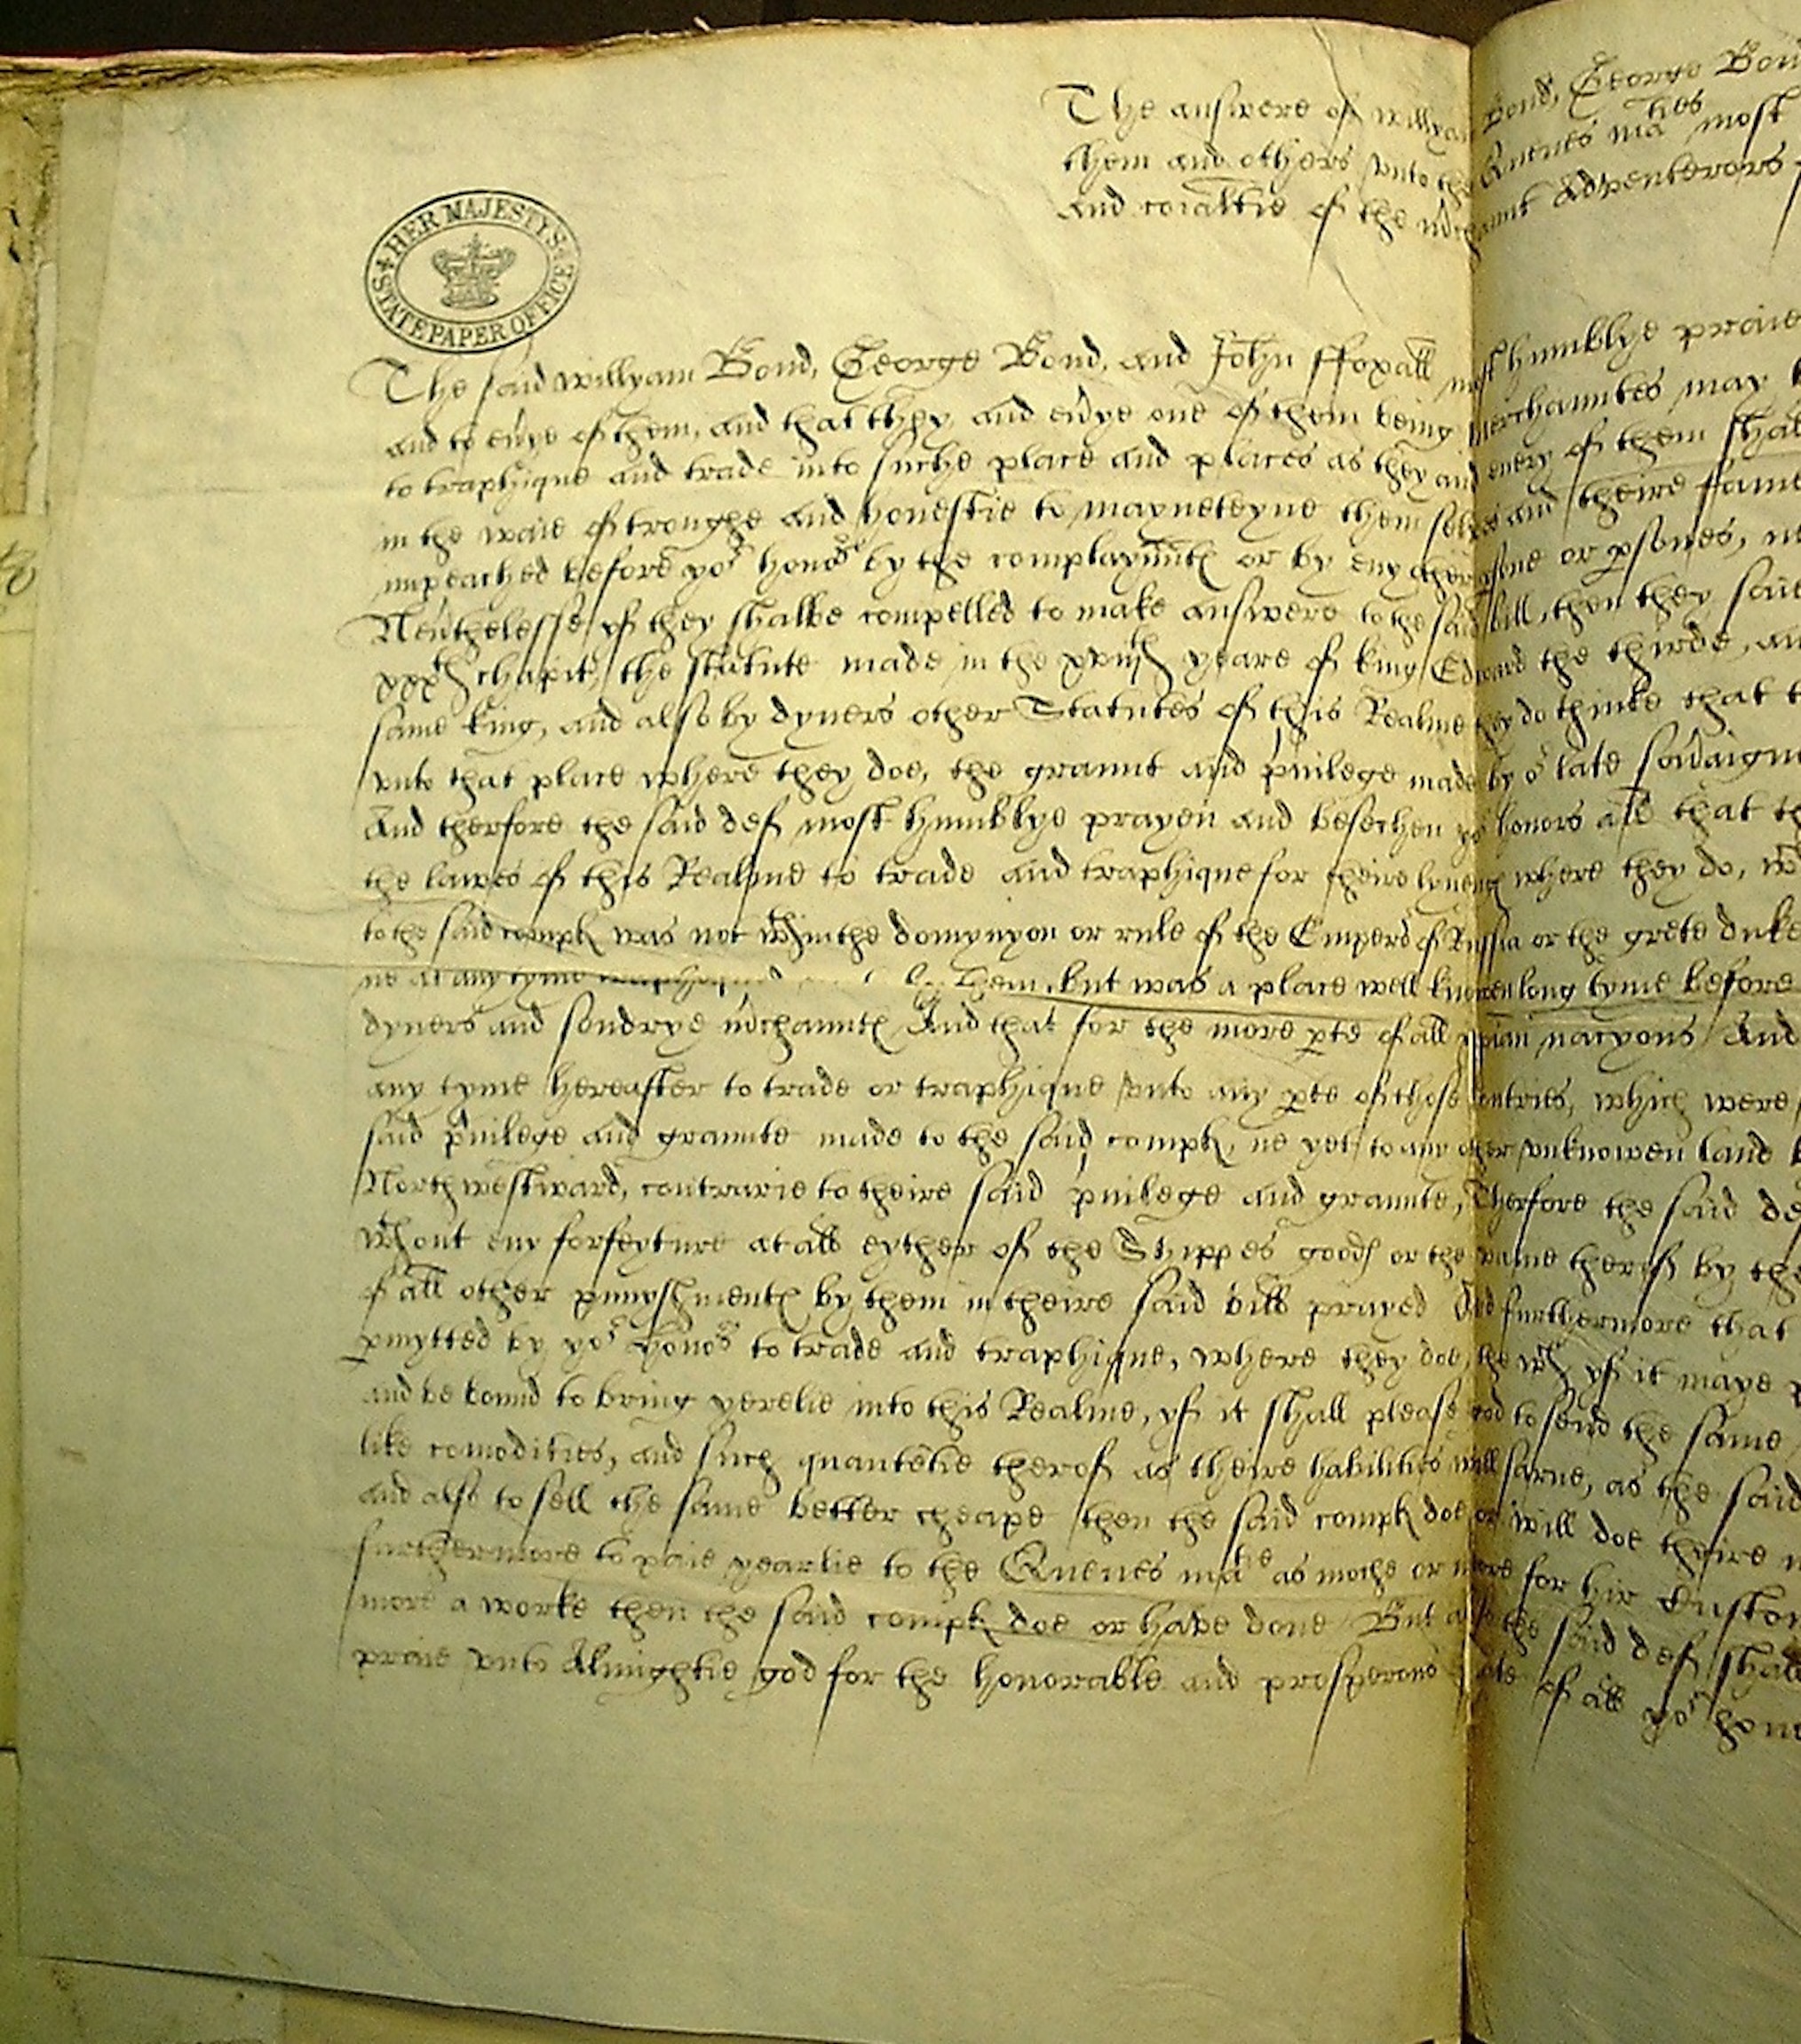 The answere of Willyam Bond, George Bon
them and others vnto the Quenes maties most
and coiãltie of the m̃chaunt Adventerors
HER MAJESTY'S STATE PAPER OFFICE
The said Willyam Bond, George Bond, and John ffoxall most humblye praie
and to eũye of them, and that they and eũye one of them being merchauntes may
to traphique and trade into suche place and places as they and euery of them shal
in the waie of troughe and honestie to mayneteyne them selves and theire fame
impeached before yor honors by the complaynnt or by eny other psone or psones,
Neũthelesse yf they shalbe compelled to make answere to the said bill, then they saie
xxxth chapiter, the statute made in the yeare of king Edward the thirde, an
same king, and also by dyuers other Statutes of this Realme they do thinke that t
vnto that place where they doe, the graunt and p̃uilege made by or late soũaigne
And therfore the said def most humblye prayen and besechen yor honors all that th
the lawes of this Realme to trade and traphique for theire lyueng where they do, w
to the said compt was not wthin the domynyon or rule of the Emperor of Russia or the grete duke
ne at any tyme traphiqued by them, but was a place well knowen long tyme before
dyuers and sondrye m̃chaunt And that for the more pte of all xpian nacyons And
any tyme hereafter to trade or traphique vnto any pte of those contries, which were
said p̃uilege and graunte made to the said compt, ne yet to any other vnknowen land
Northwestward, contrarie to theire said p̃uilege and graunte, Therfore the said de
wthout eny forfeyture at all eyther of the Shippes goods or the value therof by the
of all other punyshment by them in theire said bill prayed And furthermore that
pmytted by yor honors to trade and traphique, where they doe, the wch yf it maye
and be bound to bring yerelie into this Realme, yf it shall please god to send the same
like comodities, and such quantetie therof as theire habilities will sarue, as the said
and also to sell the same better cheape then the said compt doe or will doe theire
furthermore to paie yearlie to the Quenes matie as moche or more for hir Custom
more a worke then the said compt doe or have done But also the said def shall
praie vnto Almightie god for the honorable and prosperous state of all yor hono